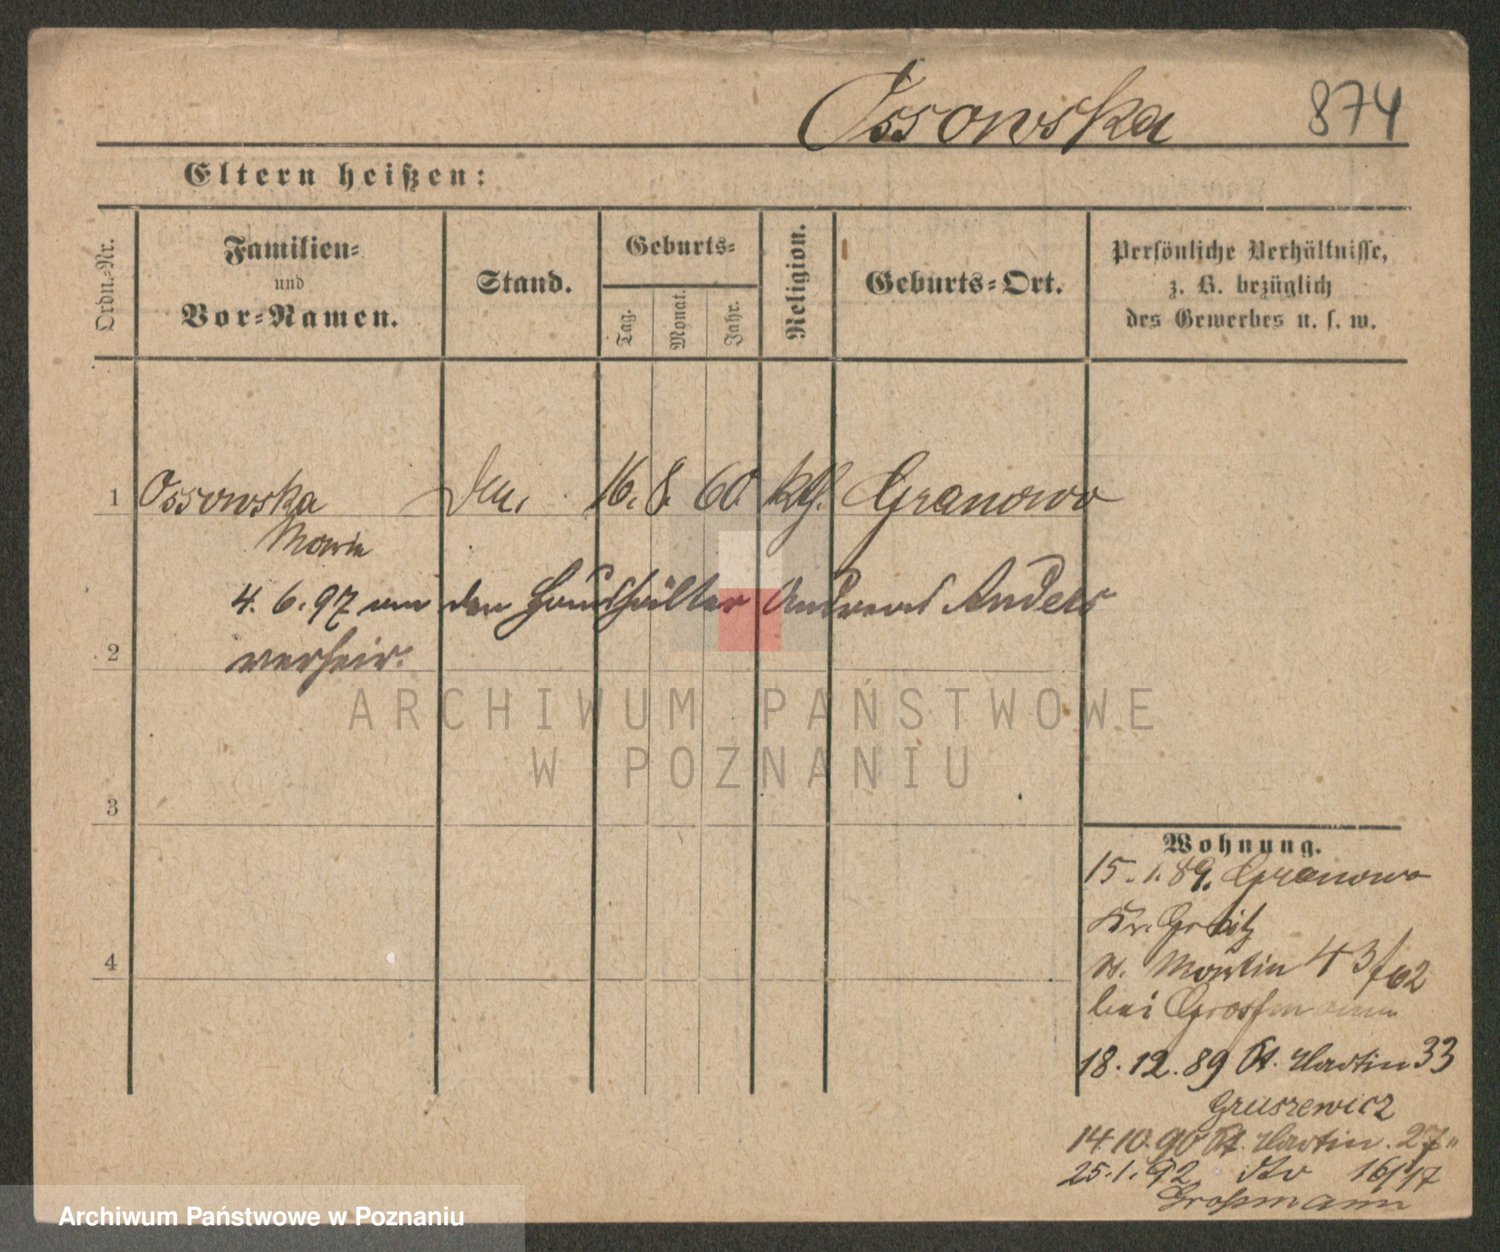 Ossowska 874
Eltern heißen:
Ordn.-Nr.
Familien-
und
Vor-Namen.
Stand.
Geburts-
Tag.
Monat.
Jahr.
Religion.
Geburts-Ort.
Persönliche Verhältnisse,
z. B. bezüglich
des Gewerbes u. s. w.
1 Ossowska 16. 8. 60 kth. Granowo
Marie
4. 6. 97 mit den Haushälter Andreas Anders
2 verheir.
3
4
Wohnung.
15. 1. 89. Granowo
Kr. Grätz
St. Martin 43/62
bei Grossmann
18. 12. 89 St. Martin 33
Gruszewicz
14 10. 90 St. Martin. 27
25. 1. 92 dto 16/17
Großmann
ARCHIWUM PAŃSTWOWE
W POZNANIU
Archiwum Państwowe w Poznaniu